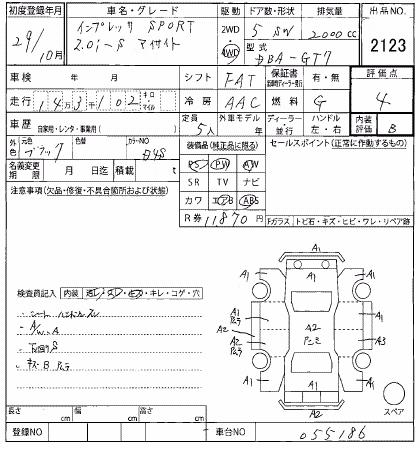 初度登録年月 車名・グレード 駆動 ドア数・形状 排気量 出品NO.
29/10月 インプレッサ SPORT 2WD 5 SW 2000cc 2123
2.0i-S アイサイト 4WD 型式 DBA-GT7
車検 年 月 シフト FAT 保証書 有・無 評価点
走行 14万3千102 キロ・マイル 冷房 AAC 燃料 G 4
車歴 自家用・レンタ・事業用( ) 定員 5人 外車モデル年 ディーラー・並行 ハンドル 左・右 内装評価 B
外色 元色 ブラック 色替 カラーNO D4S 装備品(純正品に限る) セールスポイント(正常に作動するもの)
名義変更期限 月 日迄 積載 t PS PW AW
注意事項(欠品・修復・不具合箇所および状態) SR TV ナビ
カワ エアB ABS
R券 11870円 Fガラス トビ石・キズ・ヒビ・ワレ・リペア跡
検査員記入 内装
キレ・コゲ・穴
A/W・A
下回りS
A1
A1 A1
A1
A2
A2
A2
A3
A1 A1
A1
A2
スペア
長さ cm 幅 cm 高さ cm
登録NO 車台NO 055186